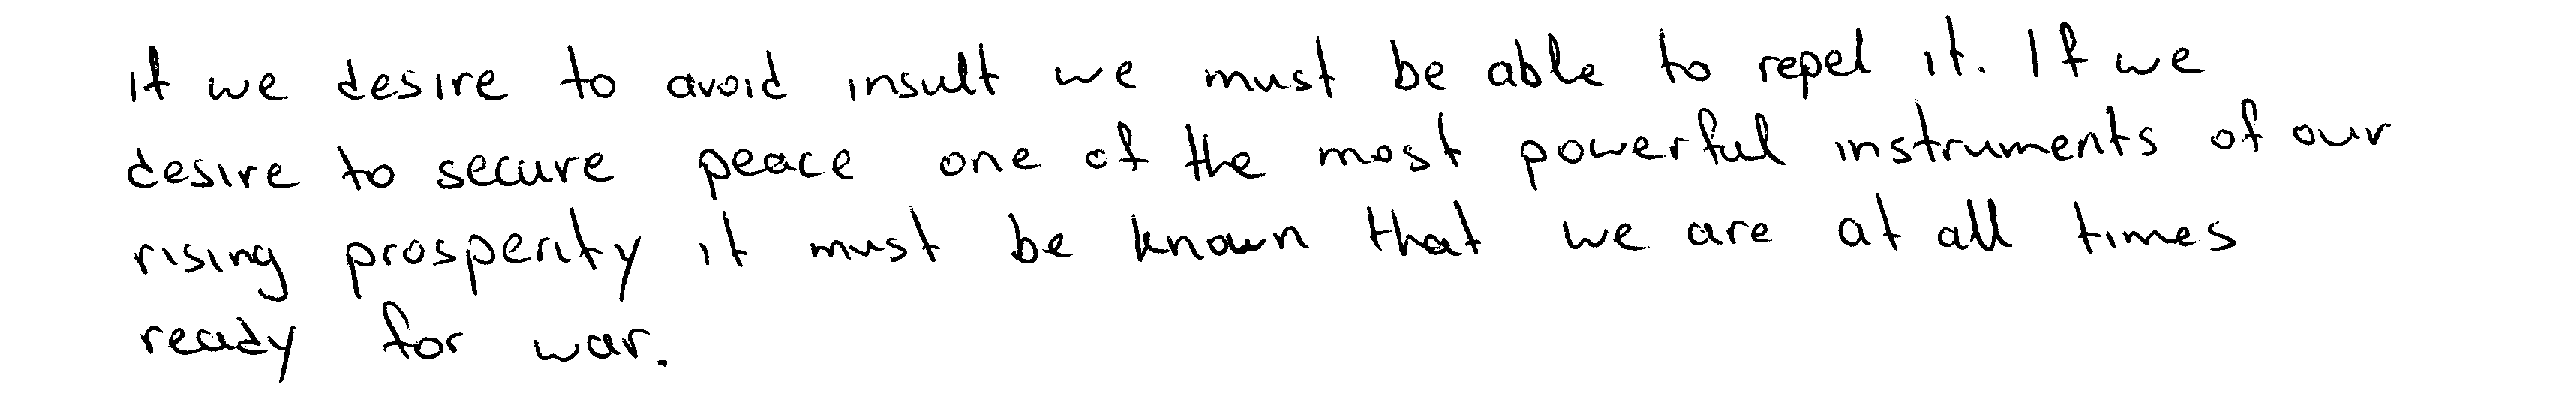 if we desire to avoid insult we must be able to repel it. If we
desire to secure peace one of the most powerful instruments of our
rising prosperity it must be known that we are at all times
ready for war.